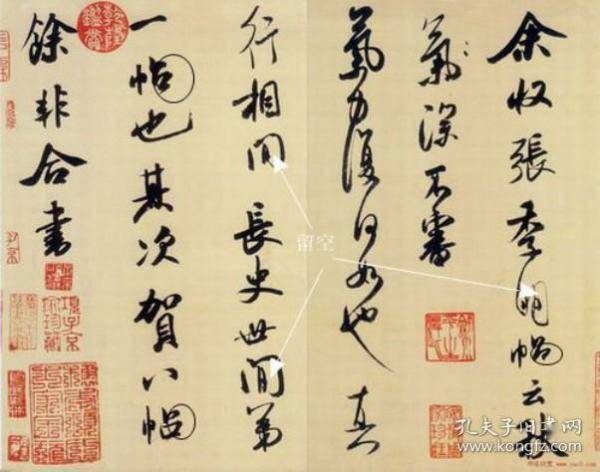 余收張季明帖云秋
氣深不審
氣力復何如也真
行相間長史世間第
一帖也其次賀八帖
餘非合書
留空
乾隆鑑賞
項子京家珍藏
孔夫子旧书网
www.kongfz.com